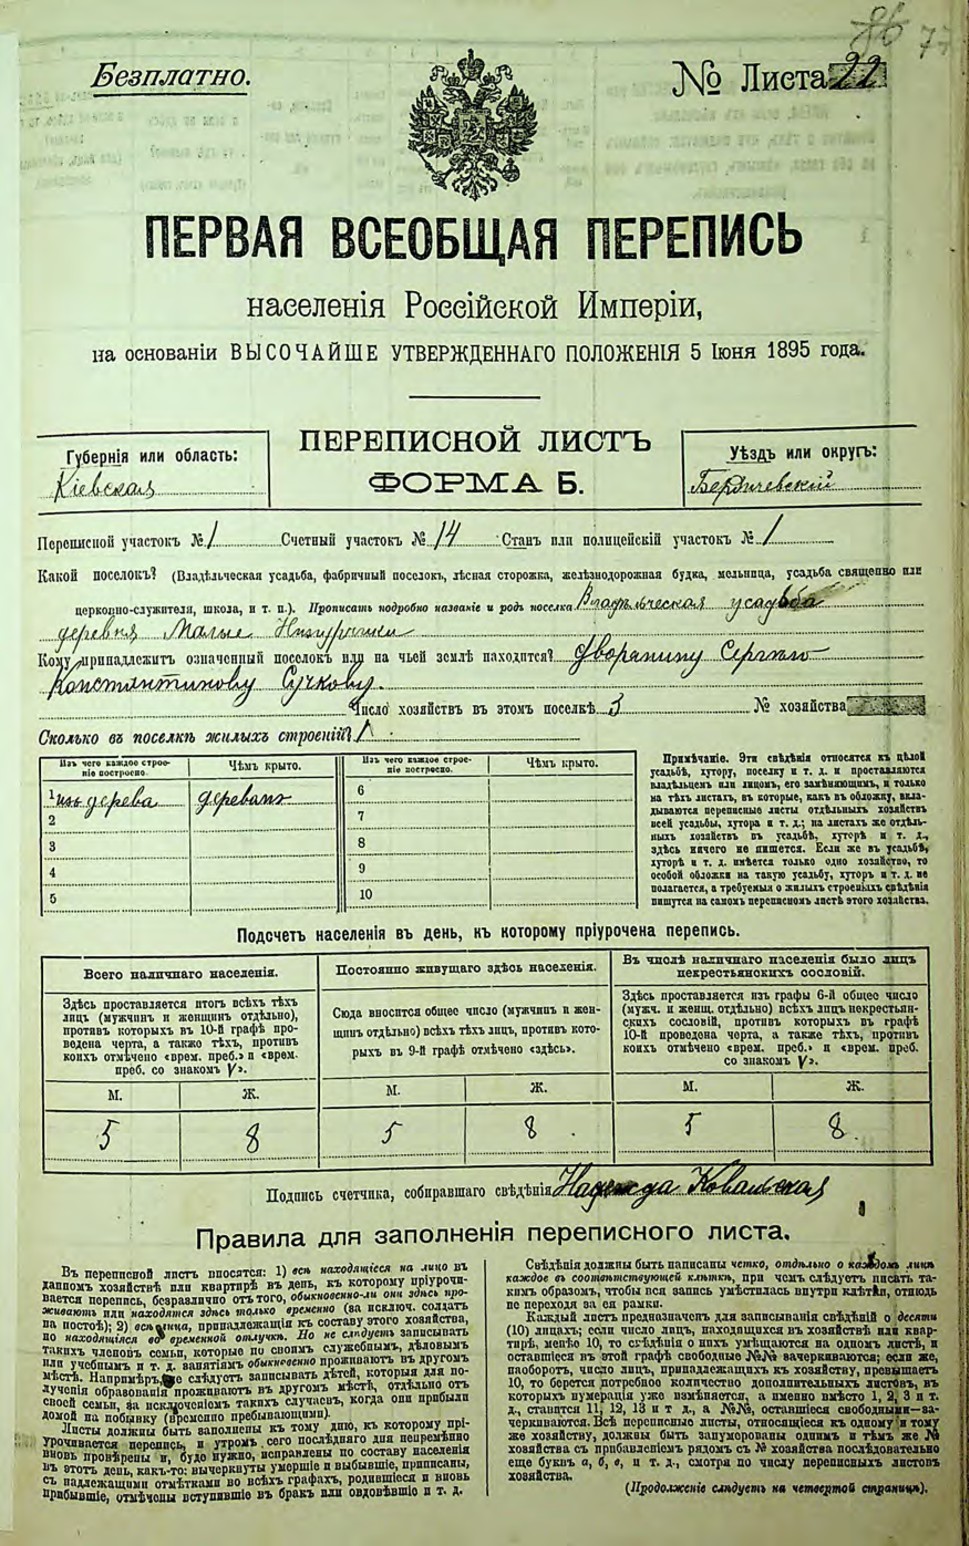 86 77
Безплатно.
№ Листа 22
ПЕРВАЯ ВСЕОБЩАЯ ПЕРЕПИСЬ
населенія Россійской Имперіи,
на основаніи ВЫСОЧАЙШЕ УТВЕРЖДЕННАГО ПОЛОЖЕНІЯ 5 Іюня 1895 года.
ПЕРЕПИСНОЙ ЛИСТЪ
ФОРМА Б.
Губернія или область:
Кіевская
Уѣздъ или округъ:
Бердичевскій
Переписной участокъ № 1 Счетный участокъ № 14 Станъ или полицейскій участокъ № 1
Какой поселокъ? (Владѣльческая усадьба, фабричный поселокъ, лѣсная сторожка, желѣзнодорожная будка, мельница, усадьба священно или
церковно-служителя, школа, и т. п.). Прописать подробно названіе и родъ поселка Владѣльческая усадьба
деревня Малые
Кому принадлежитъ означенный поселокъ или на чьей землѣ находится? Дворянину Сергѣю
Константинову Сучкову.
Число хозяйствъ въ этомъ поселкѣ 3 № хозяйства
Сколько въ поселкѣ жилыхъ строеній? 1
Изъ чего каждое строеніе построено. Чѣмъ крыто. Изъ чего каждое строеніе построено. Чѣмъ крыто.
1 изъ дерева деревомъ 6
2 7
3 8
4 9
5 10
Примѣчаніе. Эти свѣдѣнія относятся къ цѣлой
усадьбѣ, хутору, поселку и т. д. и проставляются
владѣльцемъ или лицомъ, его замѣняющимъ, и только
на тѣхъ листахъ, въ которые, какъ въ обложку, вкла-
дываются переписные листы отдѣльныхъ хозяйствъ
всей усадьбы, хутора и т. д.; на листахъ же отдѣль-
ныхъ хозяйствъ въ усадьбѣ, хуторѣ и т. д.,
здѣсь ничего не пишется. Если же въ усадьбѣ,
хуторѣ и т. д. имѣется только одно хозяйство, то
особой обложки на такую усадьбу, хуторъ и т. д. не
полагается, а требуемыя о жилыхъ строеніяхъ свѣдѣнія
пишутся на самомъ переписномъ листѣ этого хозяйства.
Подсчетъ населенія въ день, къ которому пріурочена перепись.
Всего наличнаго населенія.
Здѣсь проставляется итогъ всѣхъ тѣхъ
лицъ (мужчинъ и женщинъ отдѣльно),
противъ которыхъ въ 10-й графѣ про-
ведена черта, а также тѣхъ, противъ
коихъ отмѣчено «врем. преб.» и «врем.
преб. со знакомъ V».
Постоянно живущаго здѣсь населенія.
Сюда вносится общее число (мужчинъ и жен-
щинъ отдѣльно) всѣхъ тѣхъ лицъ, противъ кото-
рыхъ въ 9-й графѣ отмѣчено «здѣсь».
Въ числѣ наличнаго населенія было лицъ
некрестьянскихъ сословій.
Здѣсь проставляется изъ графы 6-й общее число
(мужч. и женщ. отдѣльно) всѣхъ лицъ некрестьян-
скихъ сословій, противъ которыхъ въ графѣ
10-й проведена черта, а также тѣхъ, противъ
коихъ отмѣчено «врем. преб.» и «врем. преб.
со знакомъ V».
М. Ж. М. Ж. М. Ж.
5 8 5 8 5 8
Подпись счетчика, собиравшаго свѣдѣнія Надежда Ковальская
Правила для заполненія переписного листа.
Въ переписной листъ вносятся: 1) всѣ находящіеся на лицо въ
данномъ хозяйствѣ или квартирѣ въ день, къ которому пріурочи-
вается перепись, безразлично отъ того, обыкновенно-ли они здѣсь про-
живаютъ или находятся здѣсь только временно (за исключ. солдатъ
на постоѣ); 2) всѣ лица, принадлежащія къ составу этого хозяйства,
но находящіяся во временной отлучкѣ. Но не слѣдуетъ записывать
такихъ членовъ семьи, которые по своимъ служебнымъ, дѣловымъ
или учебнымъ и т. д. занятіямъ обыкновенно проживаютъ въ другомъ
мѣстѣ. Напримѣръ, не слѣдуетъ записывать дѣтей, которыя для по-
лученія образованія проживаютъ въ другомъ мѣстѣ, отдѣльно отъ
своей семьи, за исключеніемъ такихъ случаевъ, когда они прибыли
домой на побывку (временно пребывающими).
Листы должны быть заполнены къ тому дню, къ которому прі-
урочивается перепись, и утромъ сего послѣдняго дня непремѣнно
вновь провѣрены и, буде нужно, исправлены по составу населенія
въ этотъ день, какъ-то: вычеркнуты умершіе и выбывшіе, приписаны,
съ надлежащими отмѣтками во всѣхъ графахъ, родившіеся и вновь
прибывшіе, отмѣчены вступившіе въ бракъ или овдовѣвшіе и т. д.
Свѣдѣнія должны быть написаны четко, отдѣльно о каждомъ лицѣ
каждое въ соотвѣтствующей клѣткѣ, при чемъ слѣдуетъ писать та-
кимъ образомъ, чтобы вся запись умѣстилась внутри клѣтки, отнюдь
не переходя за ея рамки.
Каждый листъ предназначенъ для записыванія свѣдѣній о десяти
(10) лицахъ; если число лицъ, находящихся въ хозяйствѣ или квар-
тирѣ, менѣе 10, то свѣдѣнія о нихъ умѣщаются на одномъ листѣ, и
оставшіеся въ этой графѣ свободные №№ вачеркиваются; если же,
наоборотъ, число лицъ, принадлежащихъ къ хозяйству, превышаетъ
10, то берется потребное количество дополнительныхъ листовъ, въ
которыхъ нумерація уже измѣняется, а именно вмѣсто 1, 2, 3 и т.
д., ставится 11, 12, 13 и т. д., а №№, оставшіеся свободными—за-
черкиваются. Всѣ переписные листы, относящіеся къ одному и тому
же хозяйству, должны быть занумерованы однимъ и тѣмъ же №
хозяйства съ прибавленіемъ рядомъ съ № хозяйства послѣдовательно
еще буквъ а, б, в, и т. д., смотря по числу переписныхъ листовъ
хозяйства.
(Продолженіе слѣдуетъ на четвертой страницѣ).